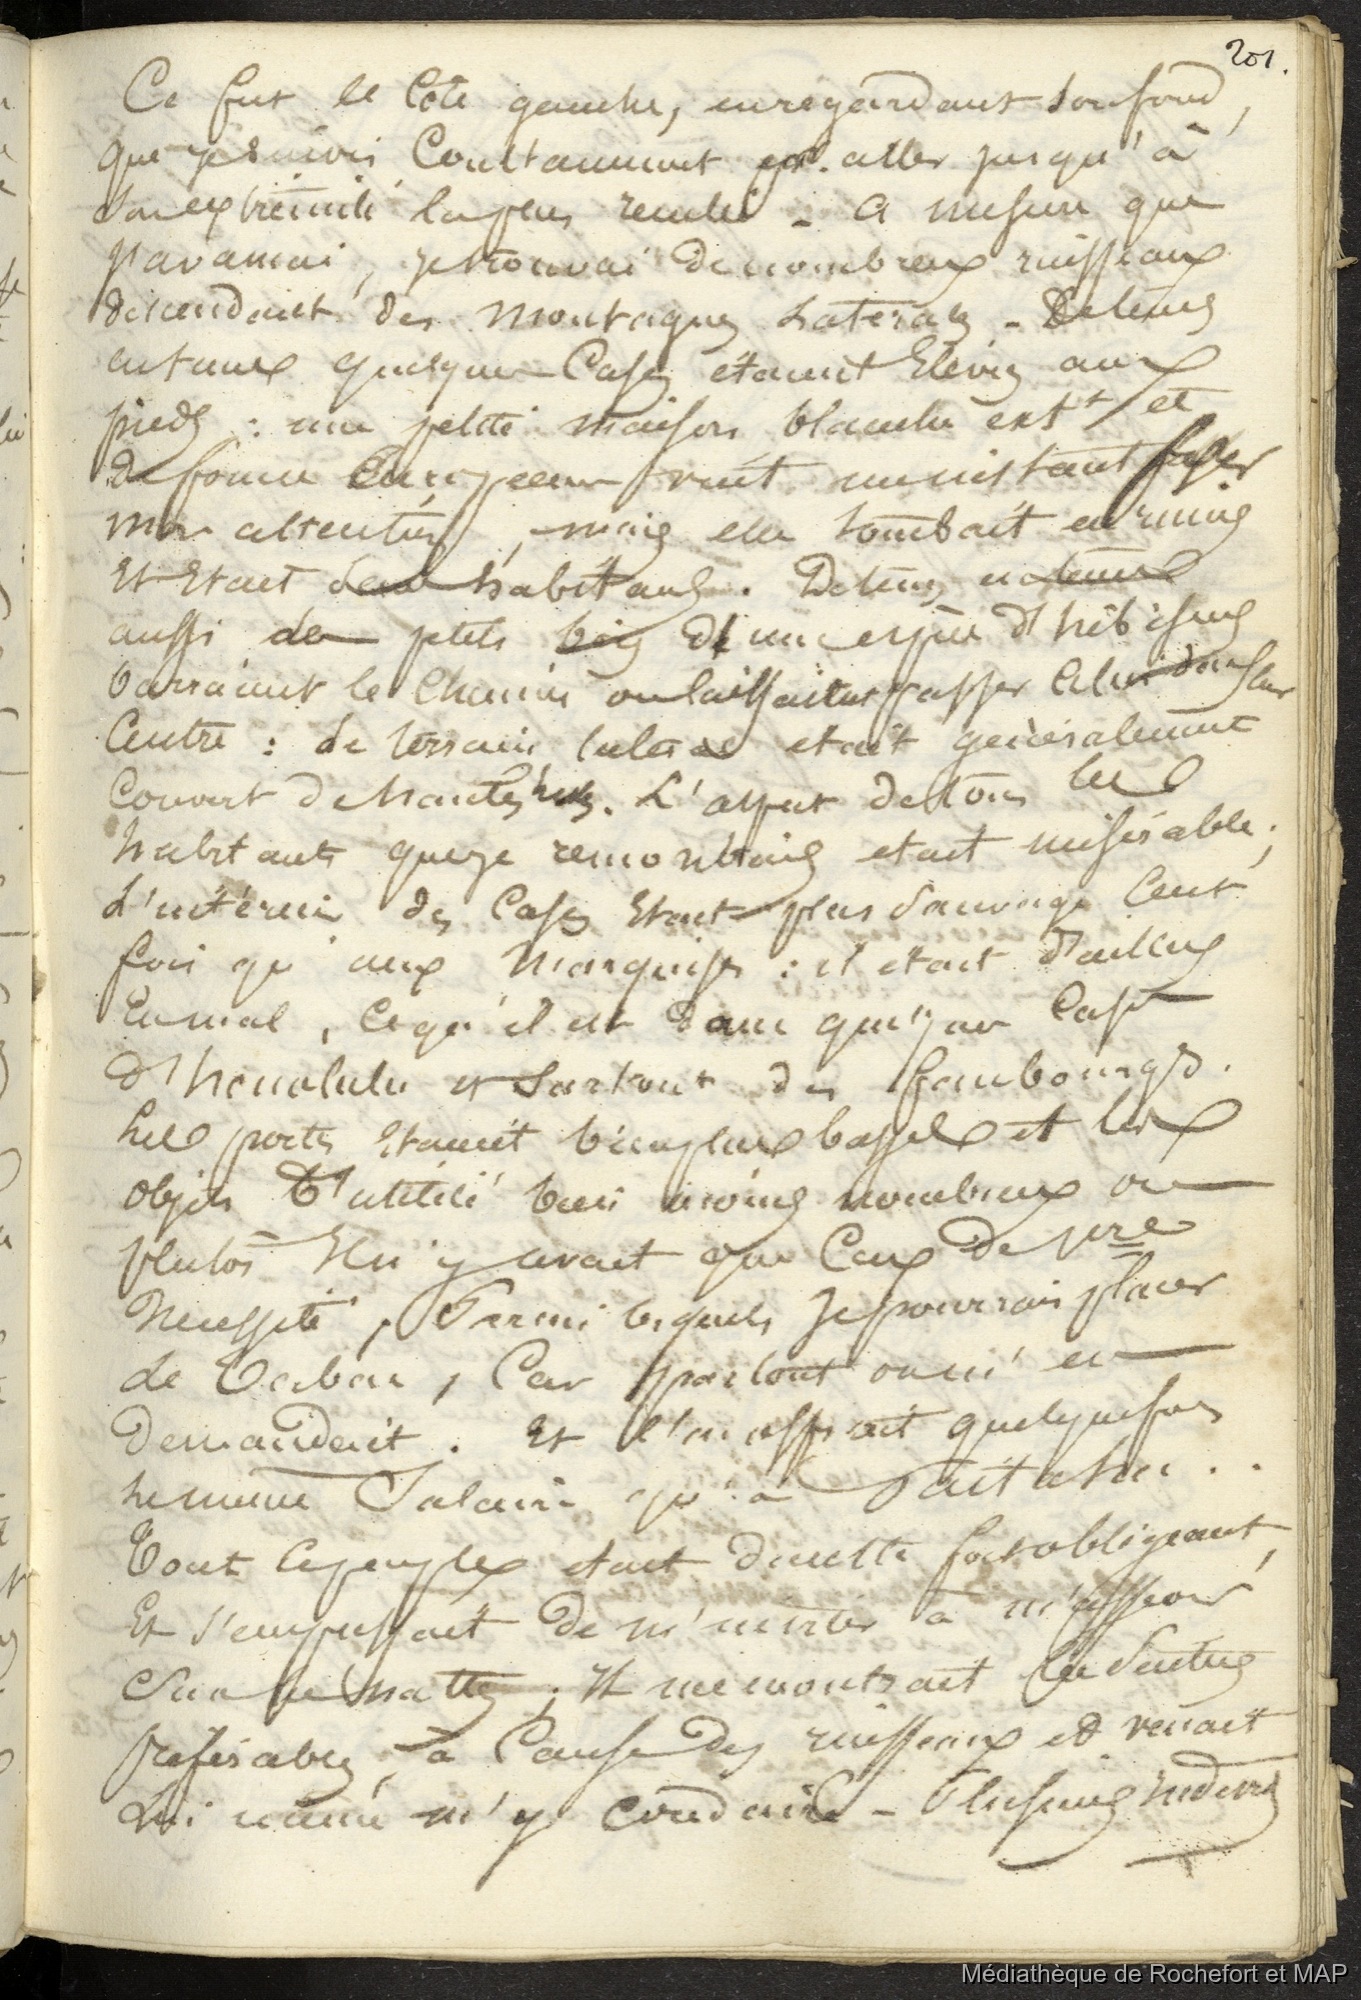 201.
Ce fut le Côté gauche, en regardant son fond,
que je suivis Constamment pr. aller jusqu'à
son extrémité la plus reculée - A mesure que
j'avancai, je trouvai de nombreux ruisseaux
descendant des Montagnes Laterales - De tems
en tems quelques Cases étaient Elevées aux
pieds : une petite maison blanche extt et
de forme Européenne vint un instant fixer
mon attention, mais elle tombait en ruines
Et Etait sans habitans. De tems en tems
aussi de petits bois d'une espèce d'hibiscus
barraient le Chemin ou laissaient passer Celui dans leur
Centre : le terrain lateral etait généralement
Couvert de hautes herbes. L'aspect de tous les
habitants que je rencontrais etait misérable ;
L'intérieur des Cases Etait plus Sauvage Cent
fois qu'aux Marquises : il etait d'ailleurs
Ce qu'il est dans quelques Cases
d'honolulu et Surtout des faubourgs.
Les portes Etaient bien plus basses et les
objets d'utilité bien moins nombreux ou
plutôt Il n'y avait que Ceux de pre
Necessité, Parmi lesquels Je pourrais placer
le Tabac, Car partout on m'en
Demandait. Et l'on m'offrait quelquefois
le meme Salaire qu'à Vaitahu . .
Tout Ce peuple etait du reste fort obligeant,
Et s'empressait de m'inviter à m'asseoir
Sur les nattes ; Il me montrait les Sentiers
préférables, à Cause des ruisseaux et venait
Lui même m'y Conduire - Plusieurs Indiens
Médiathèque de Rochefort et MAP